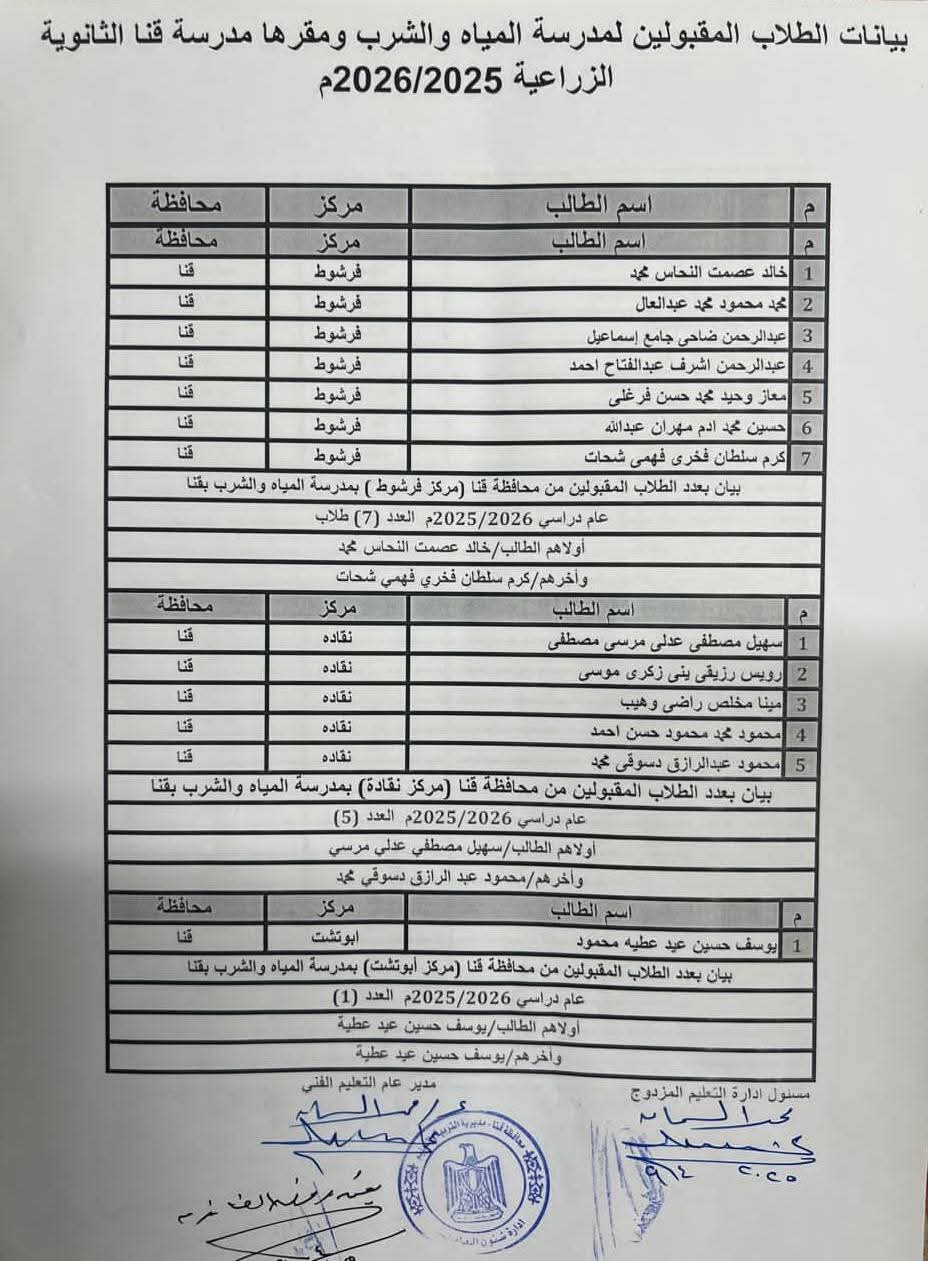 بيانات الطلاب المقبولين لمدرسة المياه والشرب ومقرها مدرسة قنا الثانوية
الزراعية 2026/2025م
م اسم الطالب مركز محافظة
م اسم الطالب مركز محافظة
1 خالد عصمت النحاس محمد فرشوط قنا
2 محمد محمود محمد عبدالعال فرشوط قنا
3 عبدالرحمن ضاحى جامع إسماعيل فرشوط قنا
4 عبدالرحمن اشرف عبدالفتاح احمد فرشوط قنا
5 معاز وحيد محمد حسن فرغلى فرشوط قنا
6 حسين محمد ادم مهران عبدالله فرشوط قنا
7 كرم سلطان فخرى فهمى شحات فرشوط قنا
بيان بعدد الطلاب المقبولين من محافظة قنا (مركز فرشوط ) بمدرسة المياه والشرب بقنا
عام دراسي 2025/2026م العدد (7) طلاب
أولاهم الطالب/خالد عصمت النحاس محمد
وأخرهم/كرم سلطان فخري فهمي شحات
م اسم الطالب مركز محافظة
1 سهيل مصطفى عدلى مرسى مصطفى نقاده قنا
2 رويس رزيقى ينى زكرى موسى نقاده قنا
3 مينا مخلص راضى وهيب نقاده قنا
4 محمود محمد محمود حسن احمد نقاده قنا
5 محمود عبدالرازق دسوقى محمد نقاده قنا
بيان بعدد الطلاب المقبولين من محافظة قنا (مركز نقادة) بمدرسة المياه والشرب بقنا
عام دراسي 2025/2026م العدد (5)
أولاهم الطالب/سهيل مصطفي عدلي مرسي
وأخرهم/محمود عبد الرازق دسوقي محمد
م اسم الطالب مركز محافظة
1 يوسف حسين عيد عطيه محمود ابوتشت قنا
بيان بعدد الطلاب المقبولين من محافظة قنا (مركز أبوتشت) بمدرسة المياه والشرب بقنا
عام دراسي 2025/2026م العدد (1)
أولاهم الطالب/يوسف حسين عيد عطية
وأخرهم/يوسف حسين عيد عطية
مسئول ادارة التعليم المزدوج
مدير عام التعليم الفني
محافظة قنا - مديرية التربية
٢٠٢٥ ٩/٤
ادارة شئون